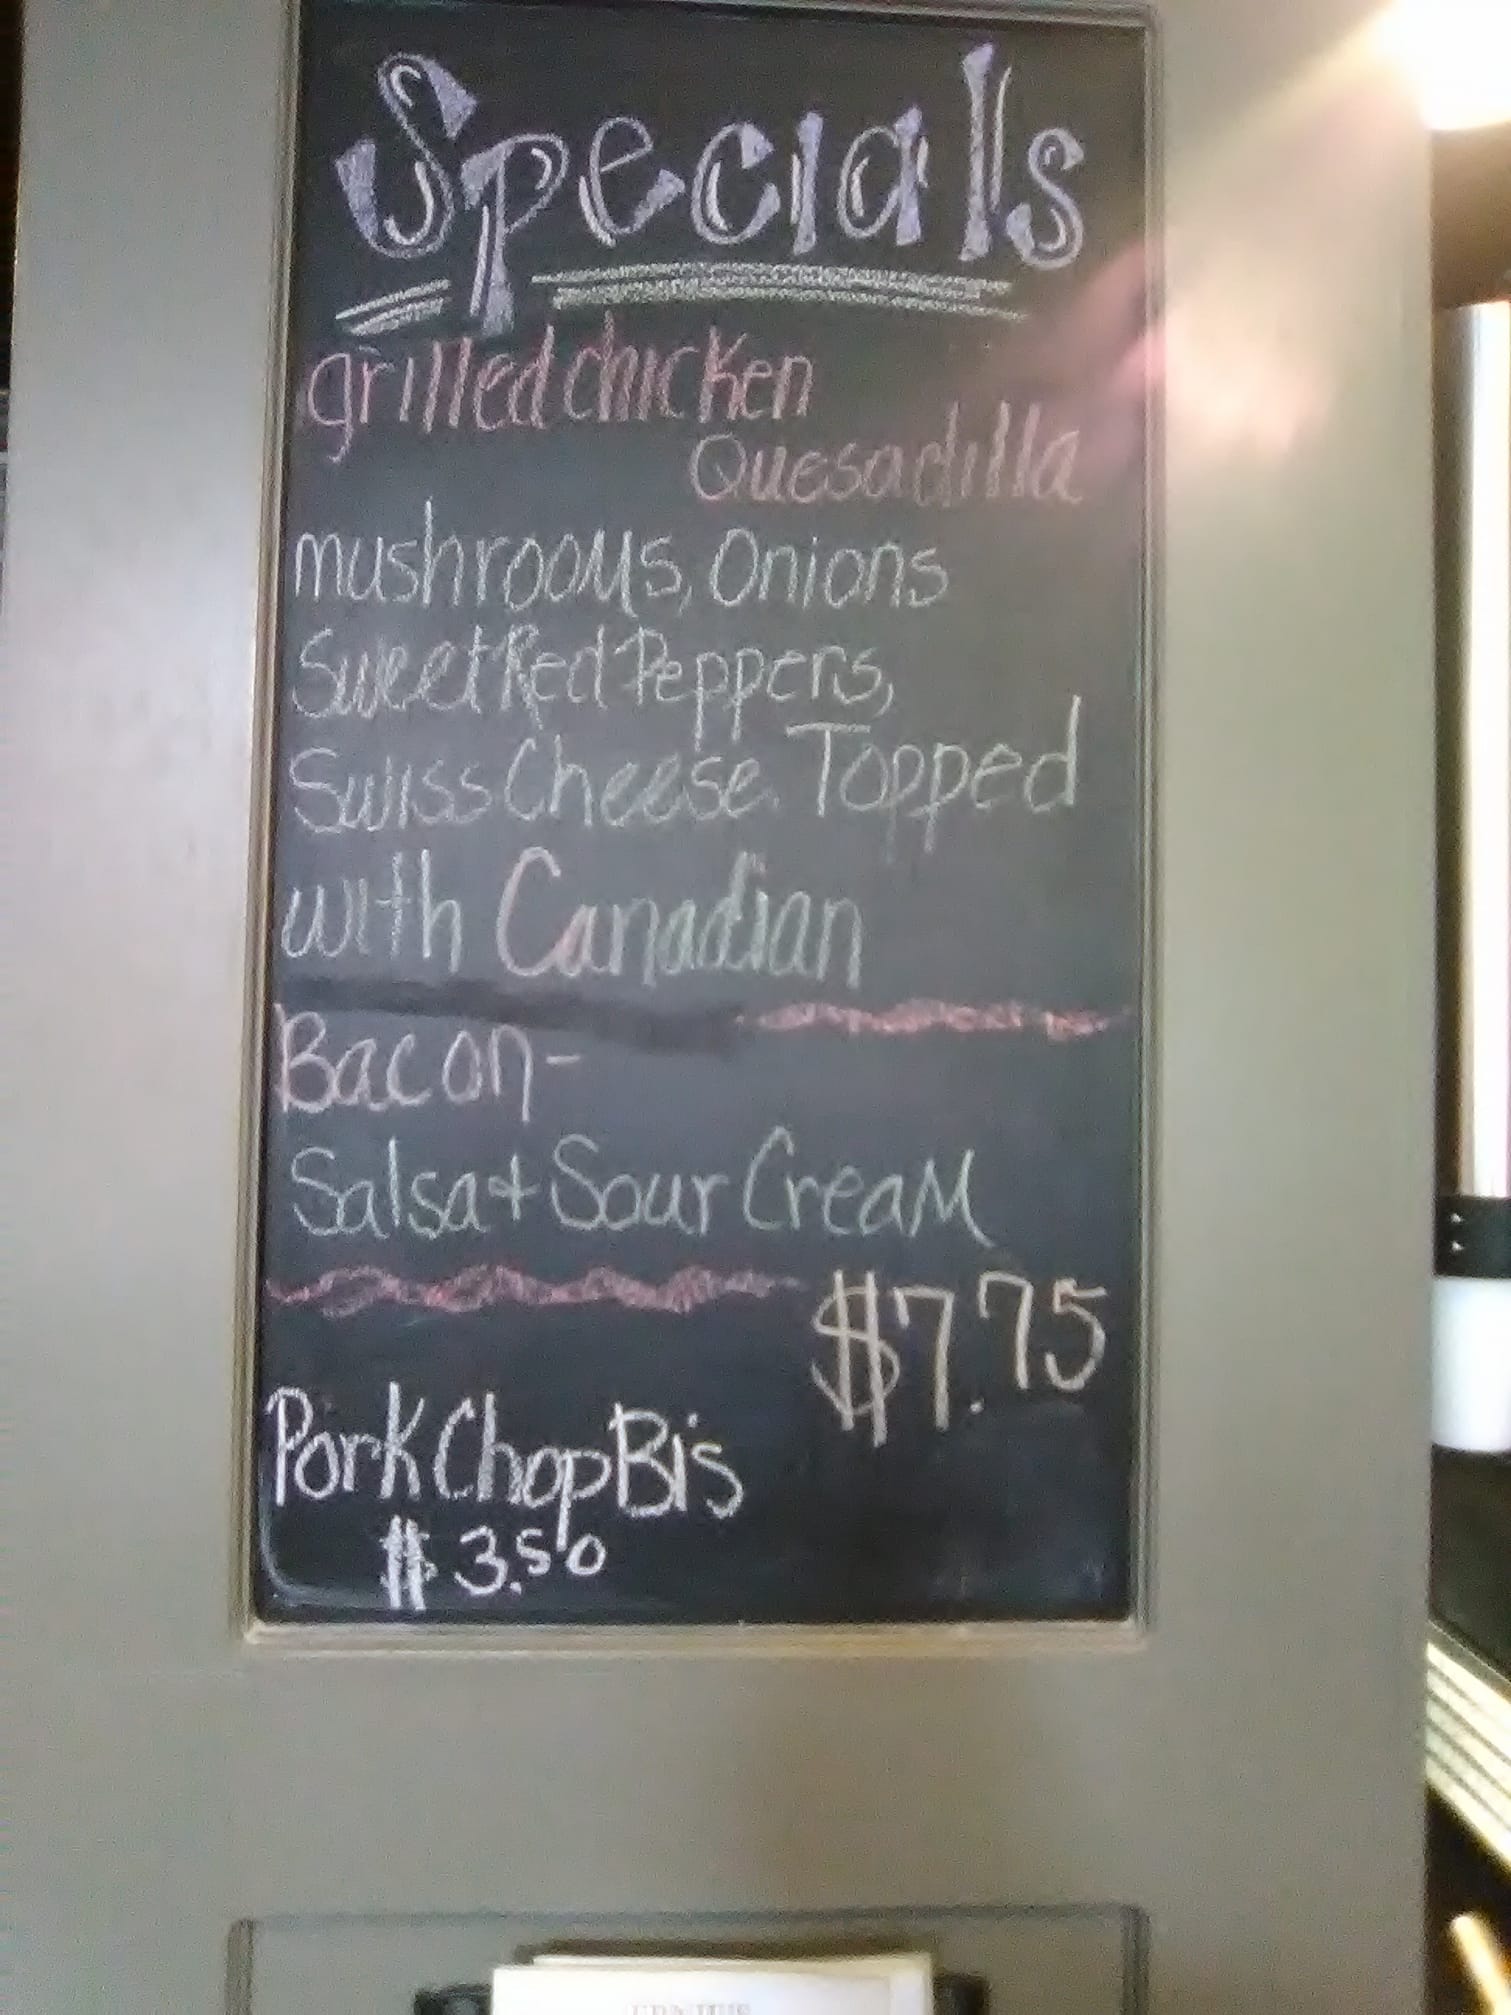 Specials
grilled chicken
Quesadilla
mushrooms, Onions
Sweet Red Peppers,
Swiss Cheese. Topped
with Canadian
Bacon-
Salsa + Sour Cream
$7.75
Pork Chop Bis
$3.50